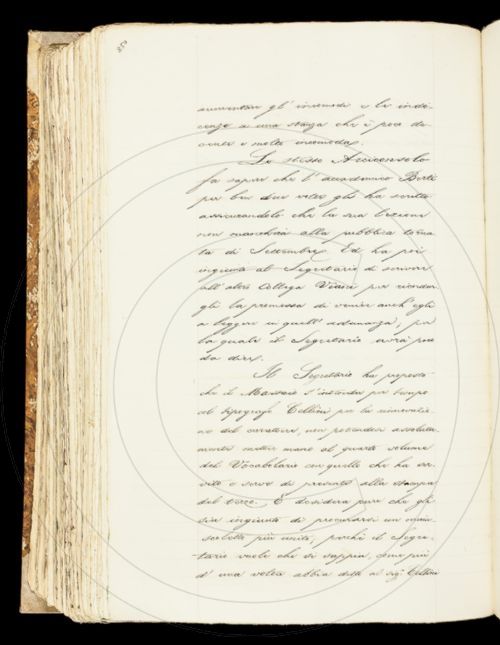 850
aumentar gl' incomodi e le indi-
cenze a una stanza che è poco de-
cente e molto incomoda.
Lo stesso Arciconsolo
fa sapere che l' accademico Berti
per ben due volte gli ha scritto
assicurandolo che la sua lezione
non mancherà alla pubblica torna-
ta di Settembre. Ed ha poi
ingiunto al Segretario di scrivere
all' altro Collega per ricordar-
gli la promessa di venire anch' egli
a leggere in quell' adunanza, per
la quale il Segretario avrà poco
da dire.
Il Segretario ha proposto
che il Massaio s' intenda per tempo
col tipografo Cellini per la rinnovazio-
ne del carattere, non potendosi assoluta-
mente metter mano al quarto volume
del Vocabolario con quello che ha ser-
vito e serve di presente alla stampa
del terzo. E desidera pure che gli
sia ingiunto di procurarsi un
più unito, perchè il Segre-
tario vuole che si sappia, come più
d' una volta abbia detto al sig. Cellini